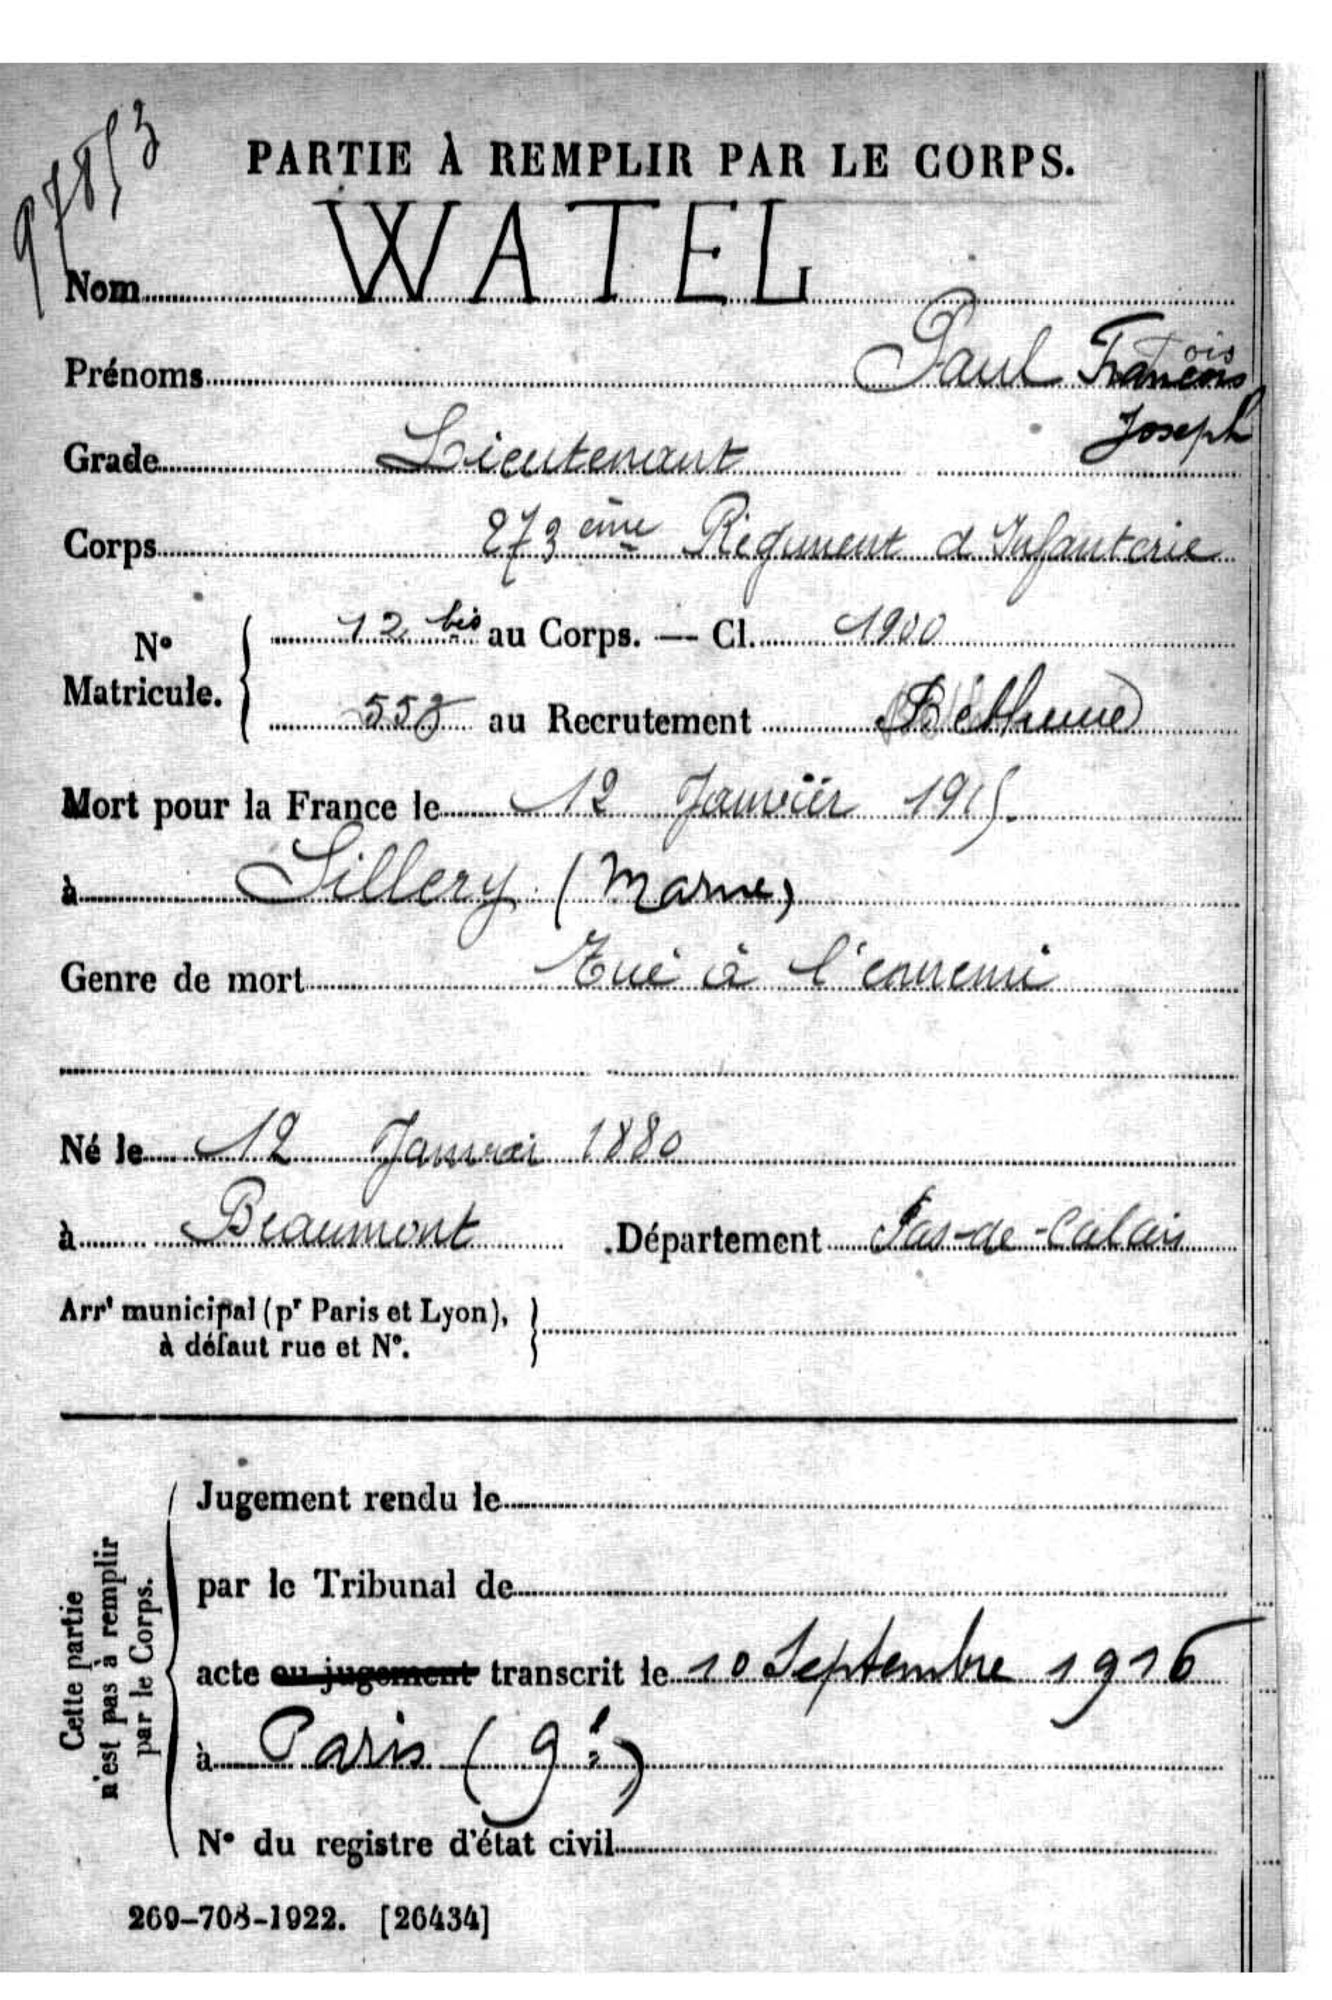 97853
PARTIE À REMPLIR PAR LE CORPS.
Nom WATEL
Prénoms Paul François
ois
Joseph
Grade Lieutenant
Corps 273 ème Régiment d'Infanterie
N° Matricule. 12 bis au Corps. — Cl. 1900
au Recrutement Béthune
Mort pour la France le 12 Janvier 1915.
à Sillery (Marne)
Genre de mort Tué à l'ennemi
Né le 12 Janvier 1880
à Beaumont Département Pas-de-Calais
Arrt municipal (pr Paris et Lyon),
à défaut rue et N°.
Cette partie
n'est pas à remplir
par le Corps.
Jugement rendu le
par le Tribunal de
acte ou jugement transcrit le 10 Septembre 1916
à Paris (9e)
N° du registre d'état civil
269-708-1922. [26434]